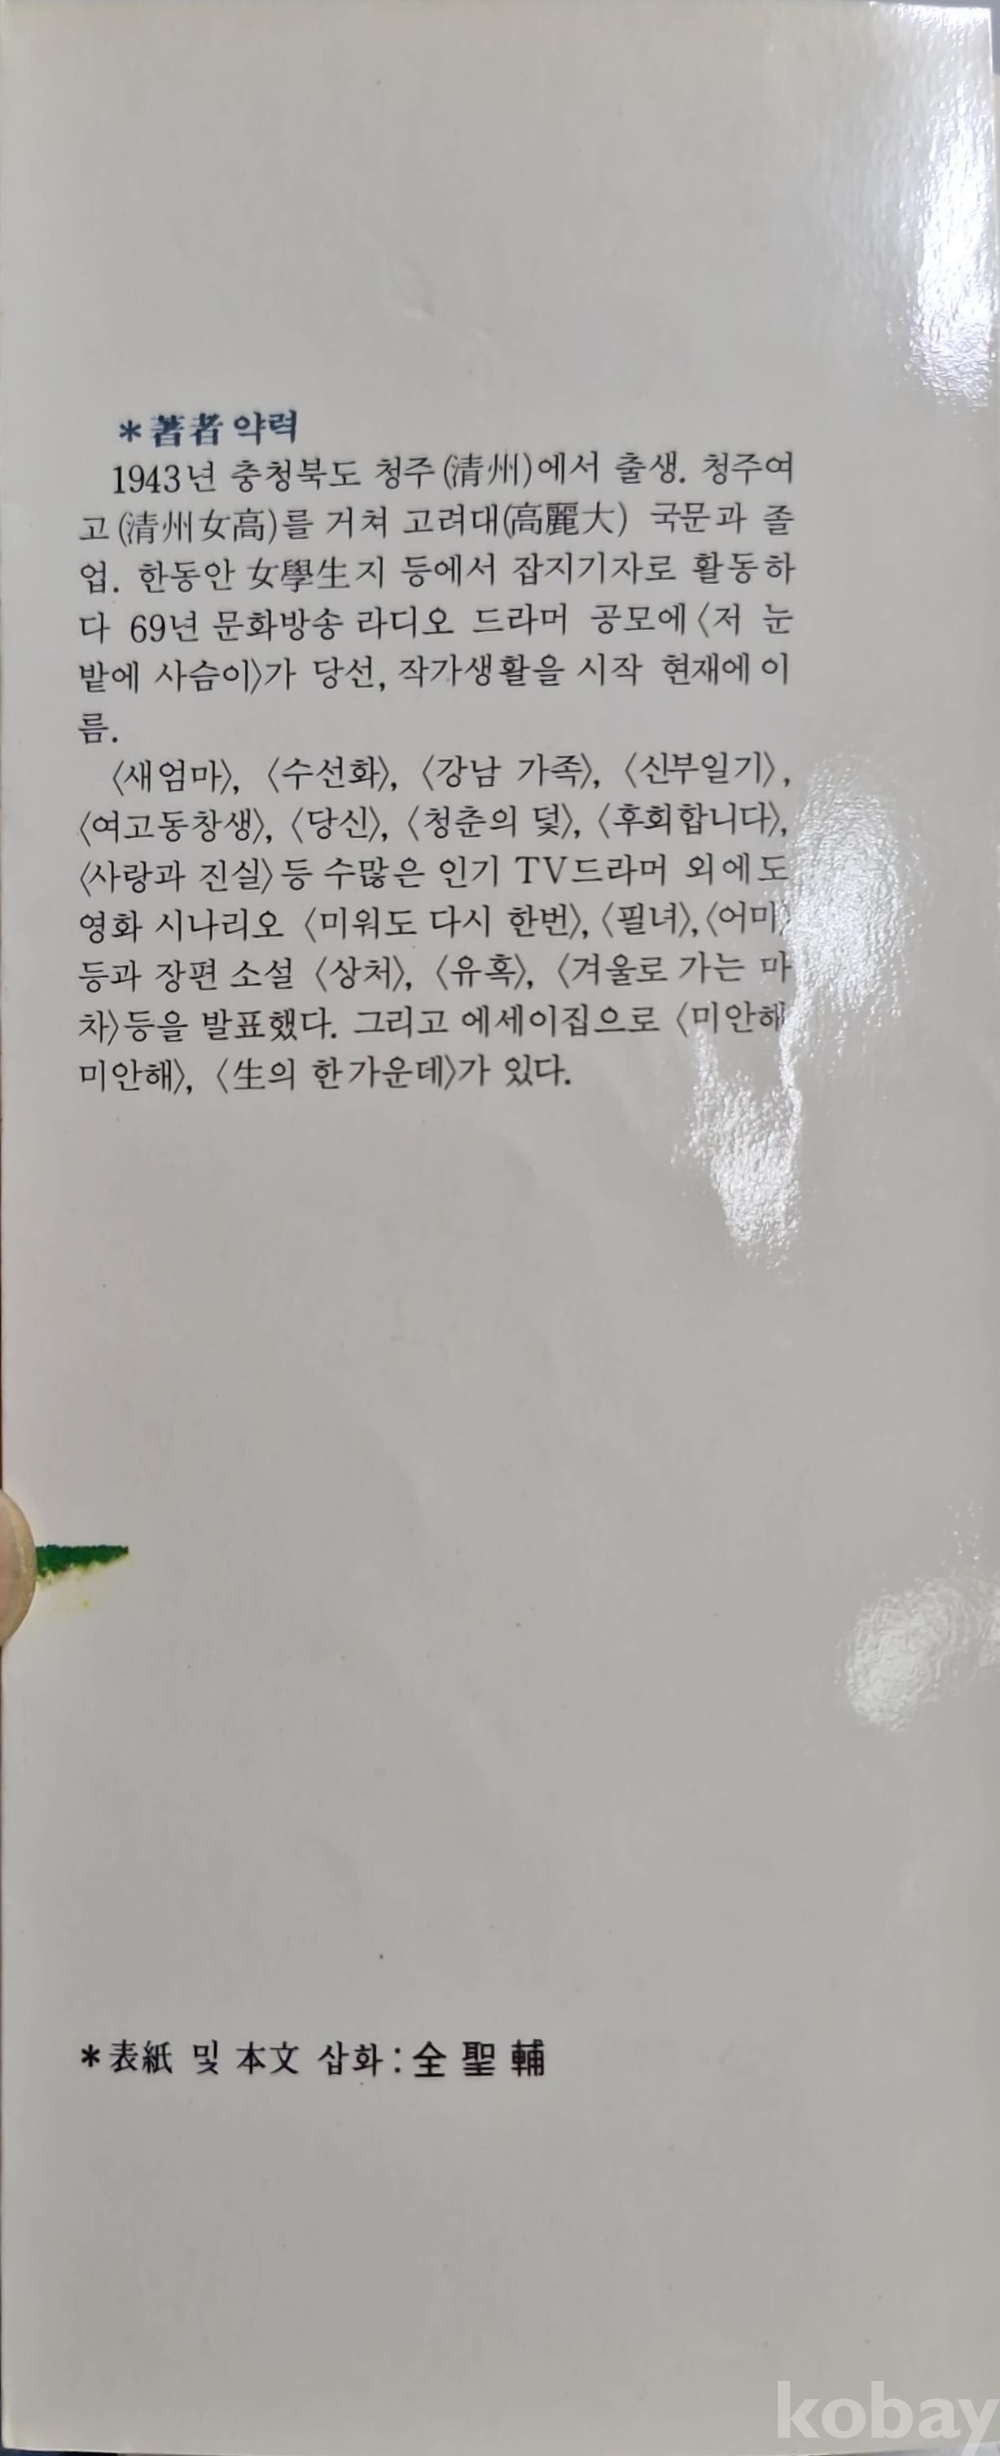 *著者 약력
1943년 충청북도 청주(清州)에서 출생. 청주여
고(清州女高)를 거쳐 고려대(高麗大) 국문과 졸
업. 한동안 女學生지 등에서 잡지기자로 활동하
다 69년 문화방송 라디오 드라머 공모에〈저 눈
밭에 사슴이〉가 당선, 작가생활을 시작 현재에 이
름.
〈새엄마〉, 〈수선화〉, 〈강남 가족〉, 〈신부일기〉,
〈여고동창생〉, 〈당신〉, 〈청춘의 덫〉, 〈후회합니다〉,
〈사랑과 진실〉등 수많은 인기 TV드라머 외에도
영화 시나리오 〈미워도 다시 한번〉, 〈필녀〉, 〈어미〉
등과 장편 소설 〈상처〉, 〈유혹〉, 〈겨울로 가는 마
차〉등을 발표했다. 그리고 에세이집으로 〈미안해
미안해〉, 〈生의 한가운데〉가 있다.
*表紙 및 本文 삽화 : 全聖輔
kobay